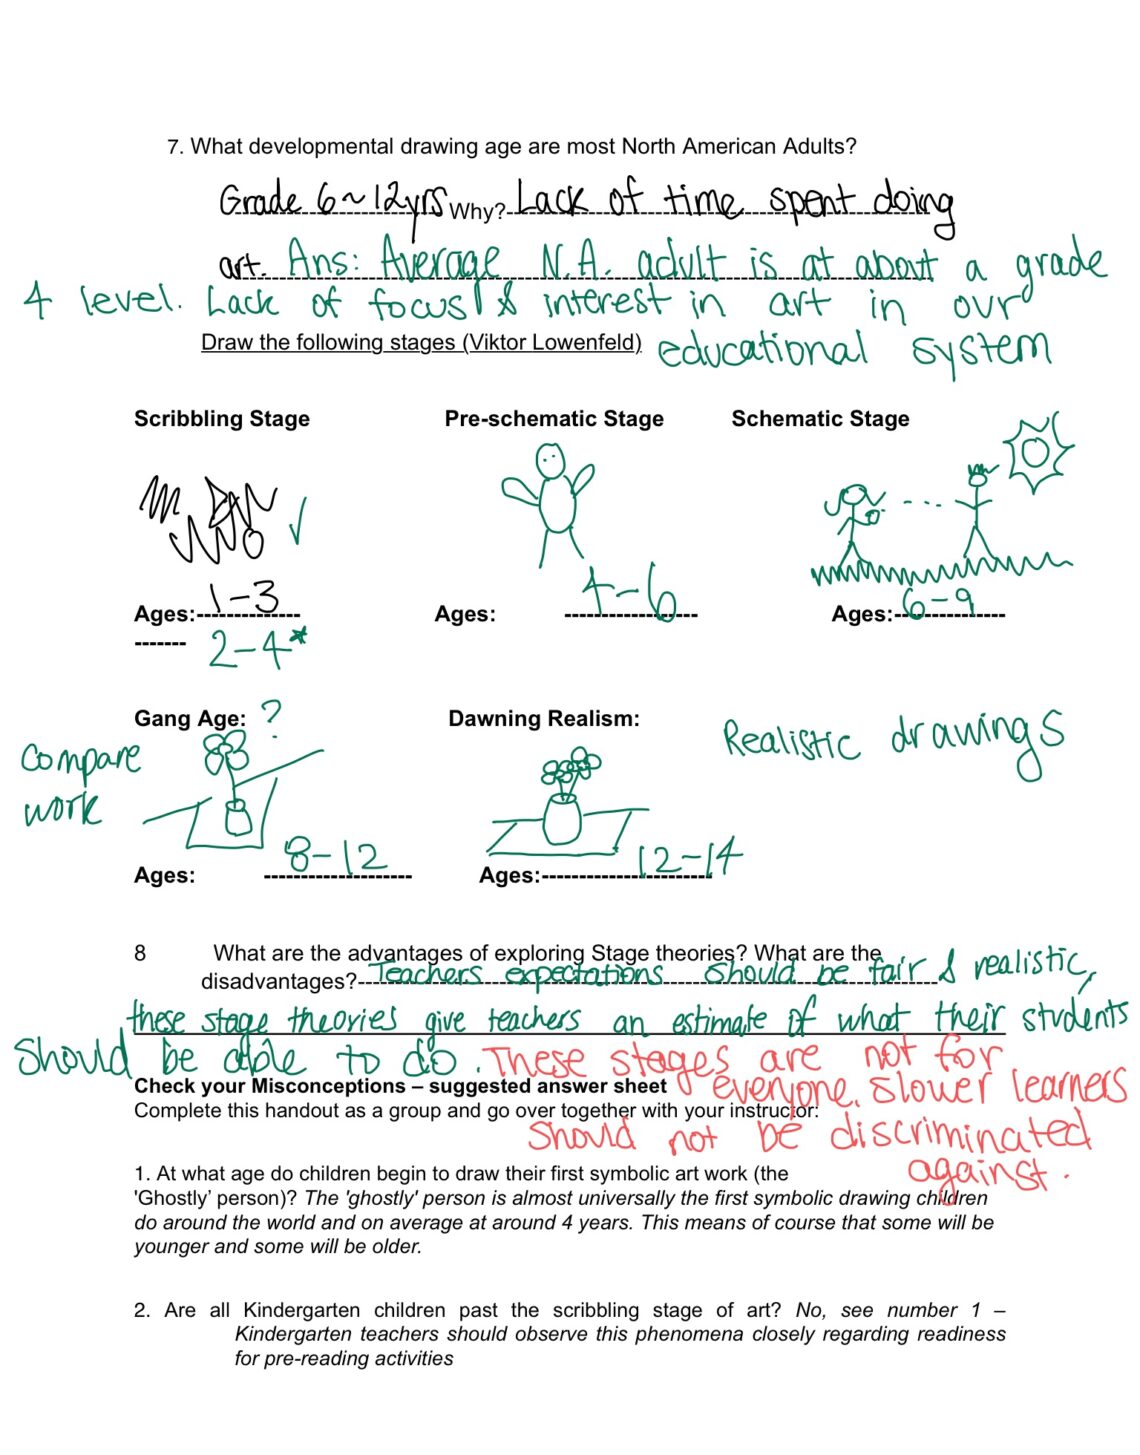 7. What developmental drawing age are most North American Adults?
Grade 6 ~ 12yrs Why? Lack of time spent doing
art. Ans: Average N.A. adult is at about a grade
4 level. Lack of focus & interest in art in our
Draw the following stages (Viktor Lowenfeld) educational system
Scribbling Stage Pre-schematic Stage Schematic Stage
Ages: 1-3 Ages: 4-6 Ages: 6-9
2-4*
Gang Age: ? Dawning Realism: Realistic drawings
Compare
work
Ages: 8-12 Ages: 12-14
8 What are the advantages of exploring Stage theories? What are the
disadvantages? Teachers expectations should be fair & realistic,
these stage theories give teachers an estimate of what their students
should be able to do. These stages are not for
Check your Misconceptions – suggested answer sheet everyone. Slower learners
Complete this handout as a group and go over together with your instructor:
should not be discriminated
against.
1. At what age do children begin to draw their first symbolic art work (the
'Ghostly' person)? The 'ghostly' person is almost universally the first symbolic drawing children
do around the world and on average at around 4 years. This means of course that some will be
younger and some will be older.
2. Are all Kindergarten children past the scribbling stage of art? No, see number 1 –
Kindergarten teachers should observe this phenomena closely regarding readiness
for pre-reading activities